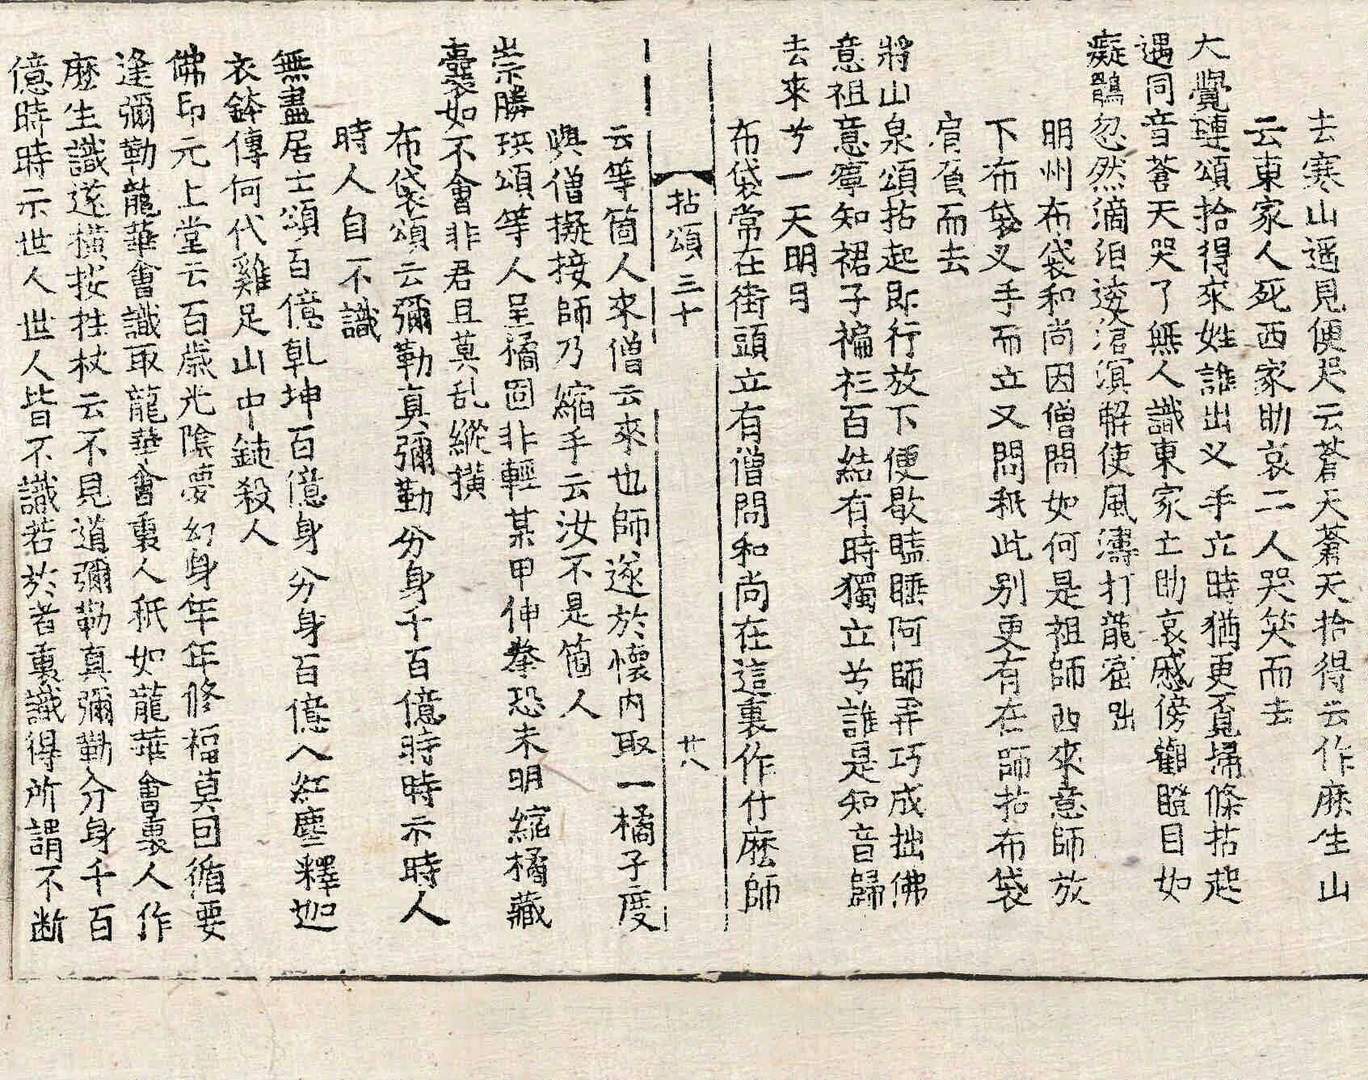 去寒山遇見便哭云蒼天蒼天拾得云作麽生山
云東家人死西家助哀二人哭笑而去
大覺璉頌拾得來姓誰出义手立時猶更覓掃條拈起
遇同音蒼天哭了無人識東家土助哀慼傍觀瞪目如
癡鶻忽然滴泪凌滄溟解使風濤打龍窟咄
明州布袋和尚因僧問如何是祖師西來意師放
下布袋义手而立又問秖此别更有在師拈布袋
肩頁而去
將山泉頌拈起即行放下便歇瞌睡阿師弄巧成拙佛
意祖意寧知裙子褊衫百結有時獨立兮誰是知音歸
去來兮一天明月
布袋常在街頭立有僧問和尚在這裏作什麽師
拈頌三十 廿八
云等箇人來僧云來也師遂於懷内取一橘子度
與僧擬接師乃縮手云汝不是箇人
崇勝珙頌等人呈橘啚非輕某甲伸拳恐未明縮橘藏
囊如不會非君且莫乱縱横
布袋頌云彌勒真彌勒分身千百億時時示時人
時人自不識
無盡居士頌百億乹坤百億身分身百億入紅塵釋迦
衣鉢傳何代雞足山中鈍殺人
佛印元上堂云百歲光陰夢幻身年年修福莫因循要
逢彌勒龍華會識取龍華會裏人秖如龍華會裏人作
麽生識遂横按拄杖云不見道彌勒真彌勒分身千百
億時時示世人世人皆不識若於者裏識得所謂不断